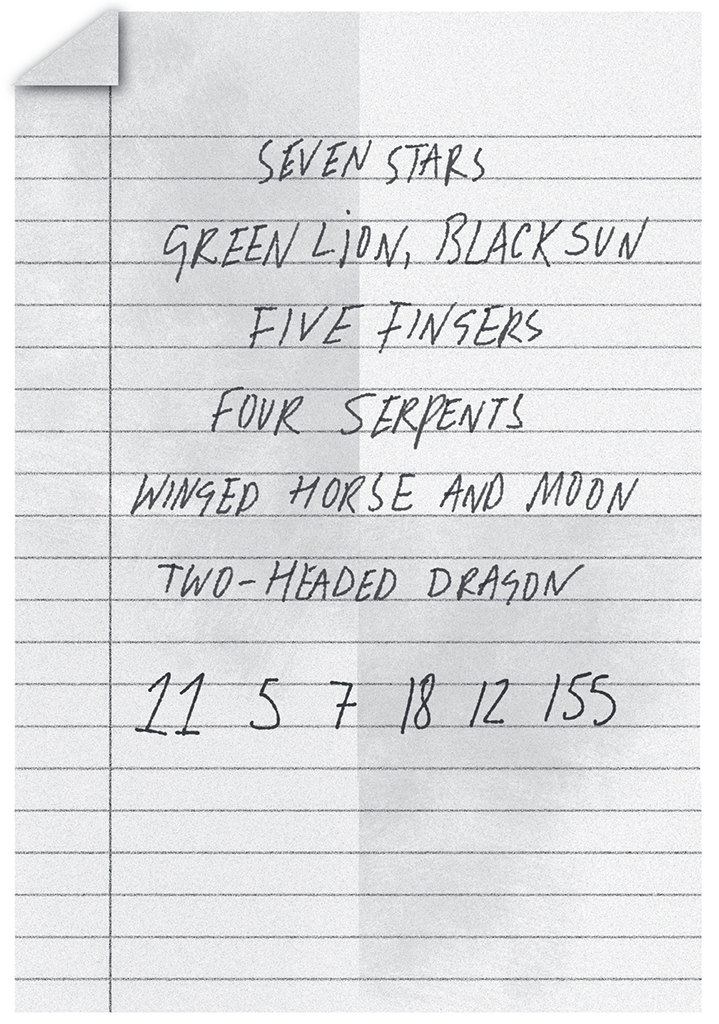 SEVEN STARS
GREEN LION, BLACK SUN
FIVE FINGERS
FOUR SERPENTS
WINGED HORSE AND MOON
TWO-HEADED DRAGON
11 5 7 18 12 155